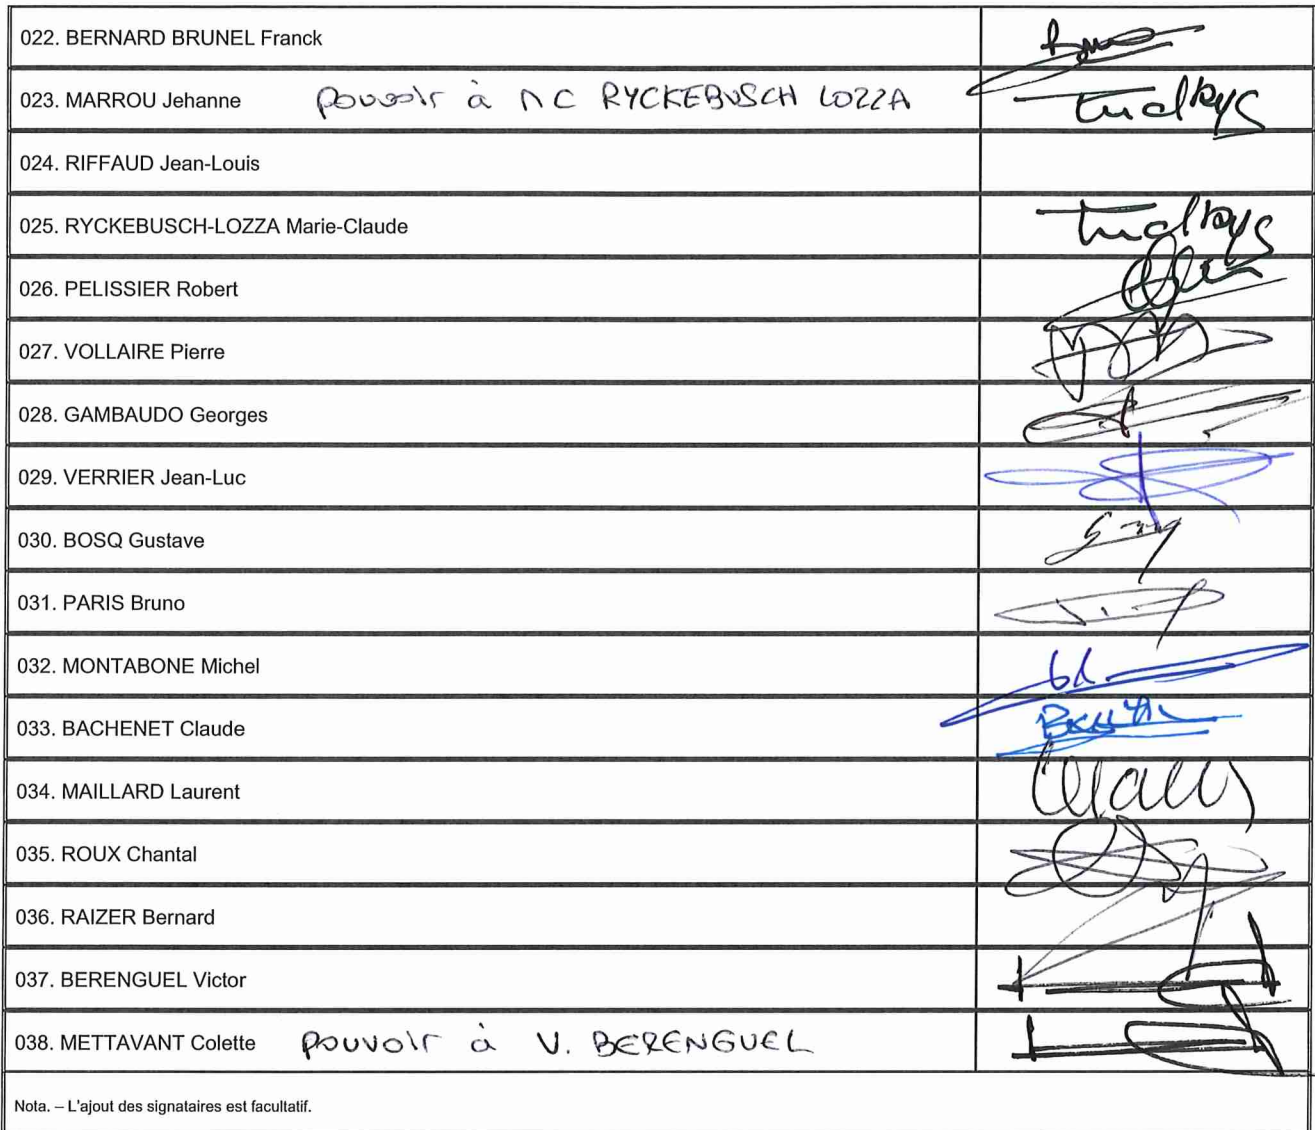 022. BERNARD BRUNEL Franck
023. MARROU Jehanne pouvoir à MC RYCKEBUSCH LOZZA
024. RIFFAUD Jean-Louis
025. RYCKEBUSCH-LOZZA Marie-Claude
026. PELISSIER Robert
027. VOLLAIRE Pierre
028. GAMBAUDO Georges
029. VERRIER Jean-Luc
030. BOSQ Gustave
031. PARIS Bruno
032. MONTABONE Michel
033. BACHENET Claude
034. MAILLARD Laurent
035. ROUX Chantal
036. RAIZER Bernard
037. BERENGUEL Victor
038. METTAVANT Colette pouvoir à V. BERENGUEL
Nota. – L'ajout des signataires est facultatif.